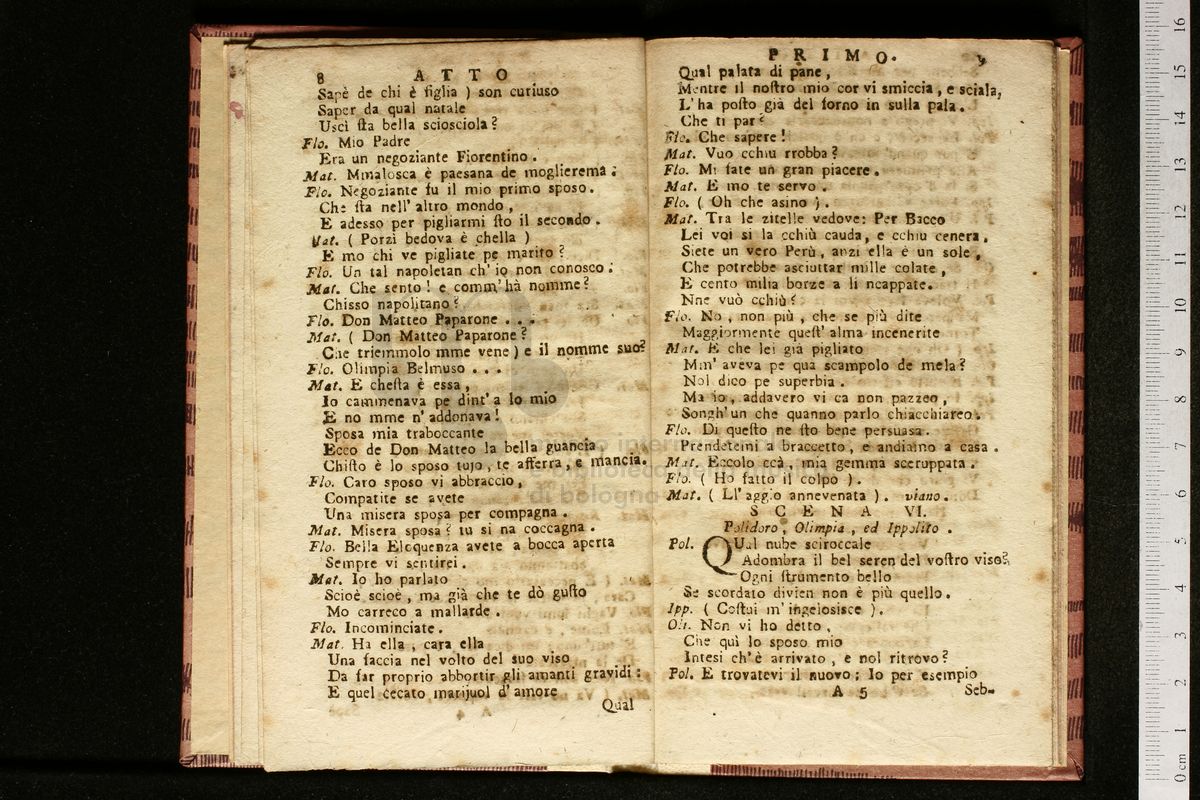 8 ATTO
Sapè de chi è figlia ) son curiuso
Saper da qual natale
Uscì ſta bella sciosciola?
Flo. Mio Padre
Era un negoziante Fiorentino.
Mat. Mmalosca è paesana de moglierema:
Flo. Negoziante fu il mio primo sposo.
Che ſta nell'altro mondo,
E adesso per pigliarmi ſto il secondo.
Mat. ( Porzì bedova è chella )
E mo chi ve pigliate pe marito?
Flo. Un tal napoletan ch'io non conosco:
Mat. Che sento! e comm'hà nomme?
Chisso napolitano?
Flo. Don Matteo Paparone . . .
Mat. ( Don Matteo Paparone?
Che triemmolo mme vene ) e il nomme suo?
Flo. Olimpia Belmuso . . .
Mat. E cheſta è essa,
Io cammenava pe dint'a lo mio
E no mme n'addonava!
Sposa mia traboccante
Ecco de Don Matteo la bella guancia
Chiſto è lo sposo tujo, te afferra, e mancia.
Flo. Caro sposo vi abbraccio,
Compatite se avete
Una misera sposa per compagna.
Mat. Misera sposa? tu si na coccagna.
Flo. Bella Eloquenza avete a bocca aperta
Sempre vi sentirei.
Mat. Io ho parlato
Scioè scioè, ma già che te dò guſto
Mo carreco a mallarde.
Flo. Incominciate.
Mat. Ha ella, cara ella
Una faccia nel volto del suo viso
Da far proprio abbortir gli amanti gravidi:
E quel cecato marijuol d'amore
Qual
PRIMO. 9
Qual palata di pane,
Mentre il noſtro mio cor vi smiccia, e sciala,
L'ha poſto già del forno in sulla pala.
Che ti par?
Flo. Che sapere!
Mat. Vuo cchiu rrobba?
Flo. Mi fate un gran piacere.
Mat. E mo te servo.
Flo. ( Oh che asino ).
Mat. Tra le zitelle vedove: Per Bacco
Lei voi si la cchiù cauda, e cchiu cenera,
Siete un vero Perù, anzi ella è un sole,
Che potrebbe asciuttar mille colate,
E cento milia borze a li ncappate.
Nne vuò cchiù?
Flo. No, non più, che se più dite
Maggiormente queſt'alma incenerite
Mat. E che lei già pigliato
Mm'aveva pe qua scampolo de mela?
Nol dico pe superbia.
Ma io, addavero vi ca non pazzeo,
Songh'un che quanno parlo chiacchiareo.
Flo. Di queſto ne ſto bene persuasa.
Prendetemi a braccetto, e andiamo a casa.
Mat. Eccolo ccà, mia gemma sceruppata.
Flo. ( Ho fatto il colpo ).
Mat. ( Ll'aggio annevenata ). viano.
SCENA VI.
Polidoro, Olimpia, ed Ippolito.
Pol. QUal nube sciroccale
Adombra il bel seren del voſtro viso?
Ogni ſtrumento bello
Se scordato divien non è più quello.
Ipp. ( Coſtui m'ingelosisce ).
Oli. Non vi ho detto,
Che quì lo sposo mio
Intesi ch'è arrivato, e nol ritrovo?
Pol. E trovatevi il nuovo; Io per esempio
A 5 Seb-